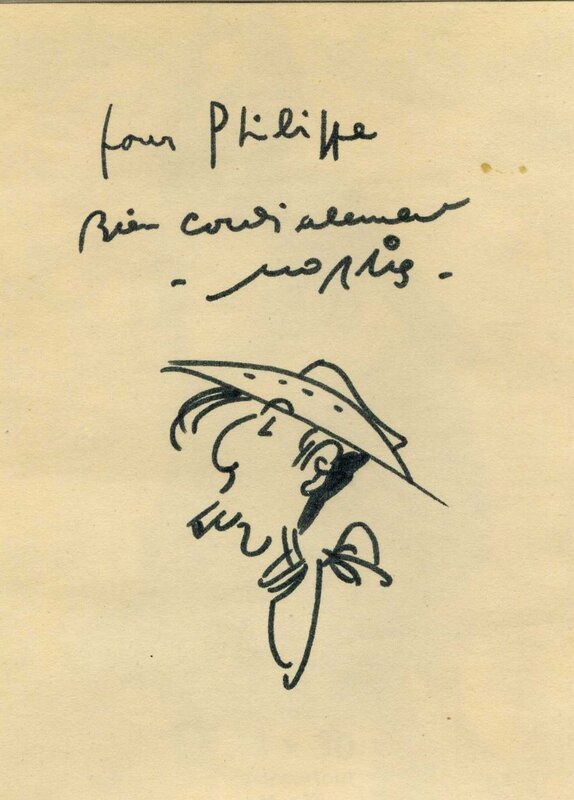 pour Philippe
Bien cordialement
- morris -